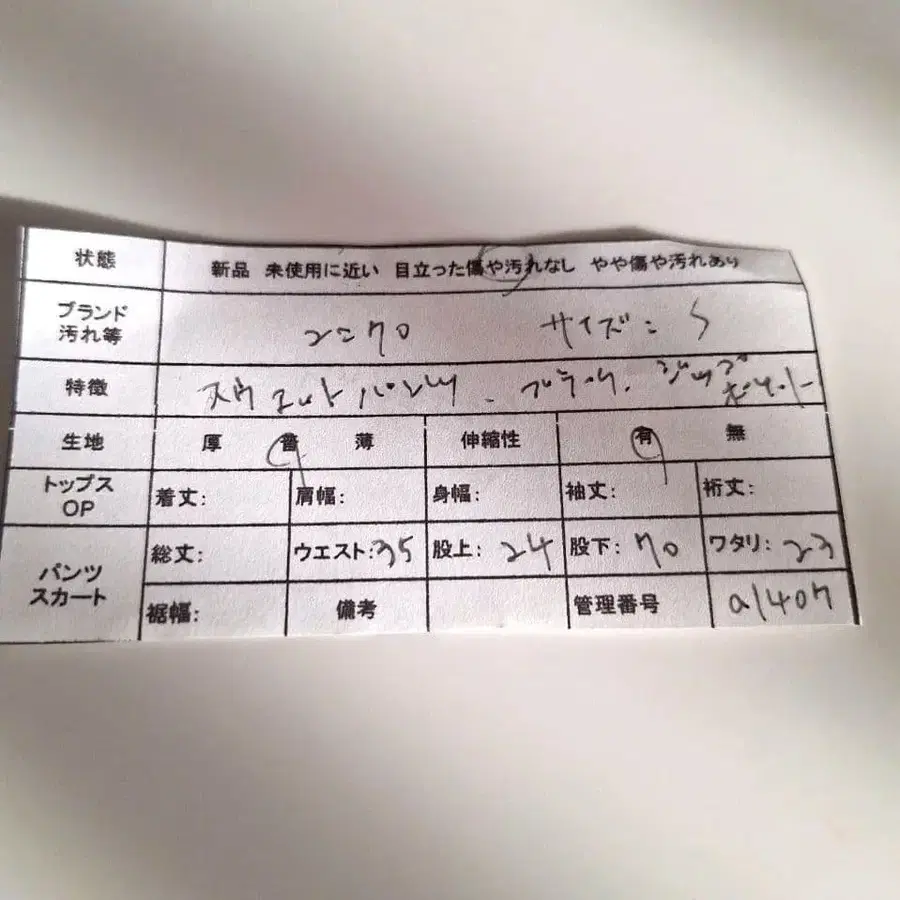 状態 新品 未使用に近い 目立った傷や汚れなし やや傷や汚れあり
ブランド
汚れ等 ユニクロ サイズ: S
特徴 スウェットパンツ、ブラック、ジップ
ポケット
生地 厚 普 薄 伸縮性 有 無
トップス
OP 着丈: 肩幅: 身幅: 袖丈: 裄丈:
パンツ
スカート 総丈: ウエスト:35 股上: 24 股下: 70 ワタリ: 23
裾幅: 備考 管理番号 a1407